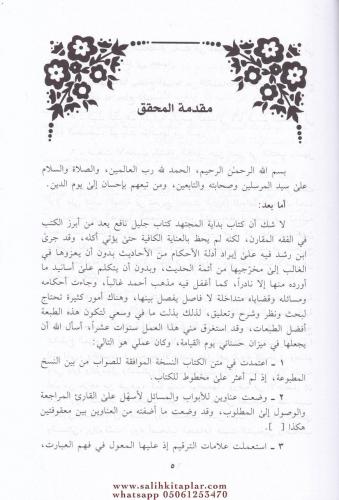 مقدمة المحقق
بسم الله الرحمن الرحيم، الحمد لله رب العالمين، والصلاة والسلام
على سيد المرسلين وصحابته والتابعين، ومن تبعهم بإحسان إلى يوم الدين.
أما بعد:
لا شك أن كتاب بداية المجتهد كتاب جليل نافع يعد من أبرز الكتب
في الفقه المقارن، لكنه لم يحظ بالعناية الكافية حتى يؤتي أكله، وقد جرى
ابن رشد فيه على إيراد أدلة الأحكام من الأحاديث بدون أن يعزوها في
الغالب إلى مخرّجيها من أئمة الحديث، وبدون أن يتكلم على أسانيد ما
أورده منها إلا نادراً، كما أغفل فيه مذهب أحمد غالباً، وجاءت أحكامه
ومسائله وقضاياه متداخلة لا فاصل يفصل بينها، وهناك أمور كثيرة تحتاج
لبحث ونظر وشرح وتعليق، لذلك بذلت ما في وسعي لتكون هذه الطبعة
أفضل الطبعات، وقد استغرق مني هذا العمل سنوات عشراً، أسأل الله أن
يجعلها في ميزان حسناتي يوم القيامة، وكان عملي هو التالي:
١ ـ اعتمدت في متن الكتاب النسخة الموافقة للصواب من بين النسخ
المطبوعة، إذ لم أعثر على مخطوط للكتاب.
٢ ـ وضعت عناوين للأبواب والمسائل لأسهّل على القارئ المراجعة
والوصول إلى المطلوب، وقد وضعت ما أضفته من العناوين بين معقوفتين
هكذا [ ].
٣ ـ استعملت علامات الترقيم إذ عليها المعول في فهم العبارت،
٥
www.salihkitaplar.com
whatsapp 05061253470